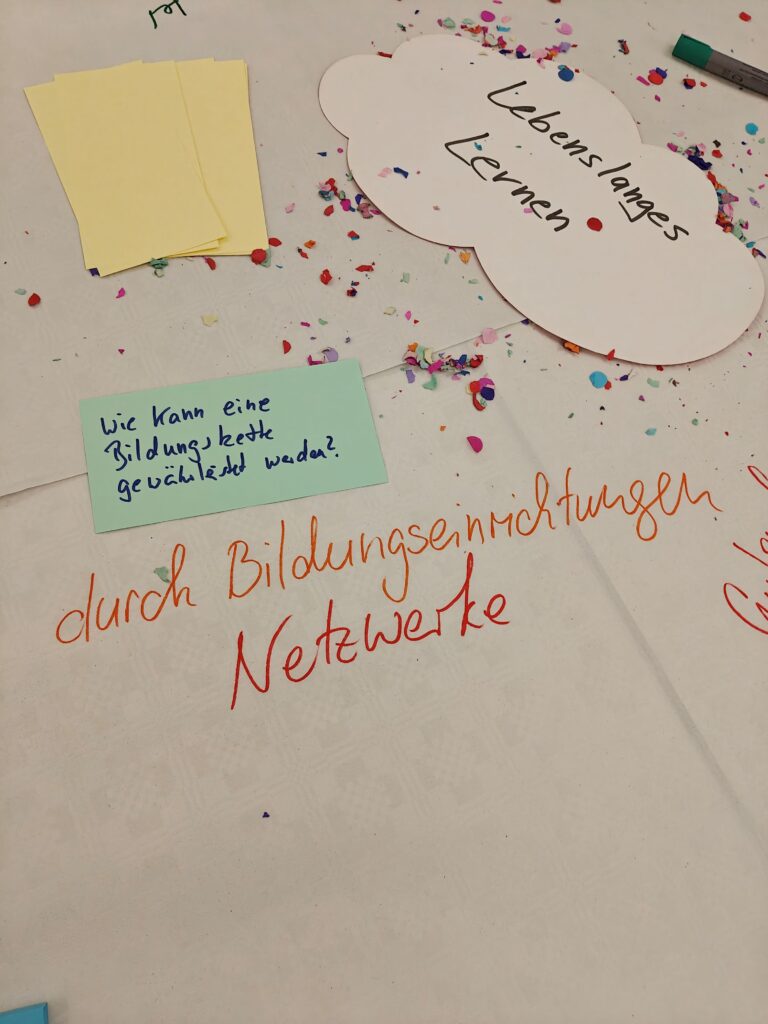 Lebenslanges
Lernen
Wie kann eine
Bildungskette
gewährleistet werden?
durch Bildungseinrichtungen
Netzwerke